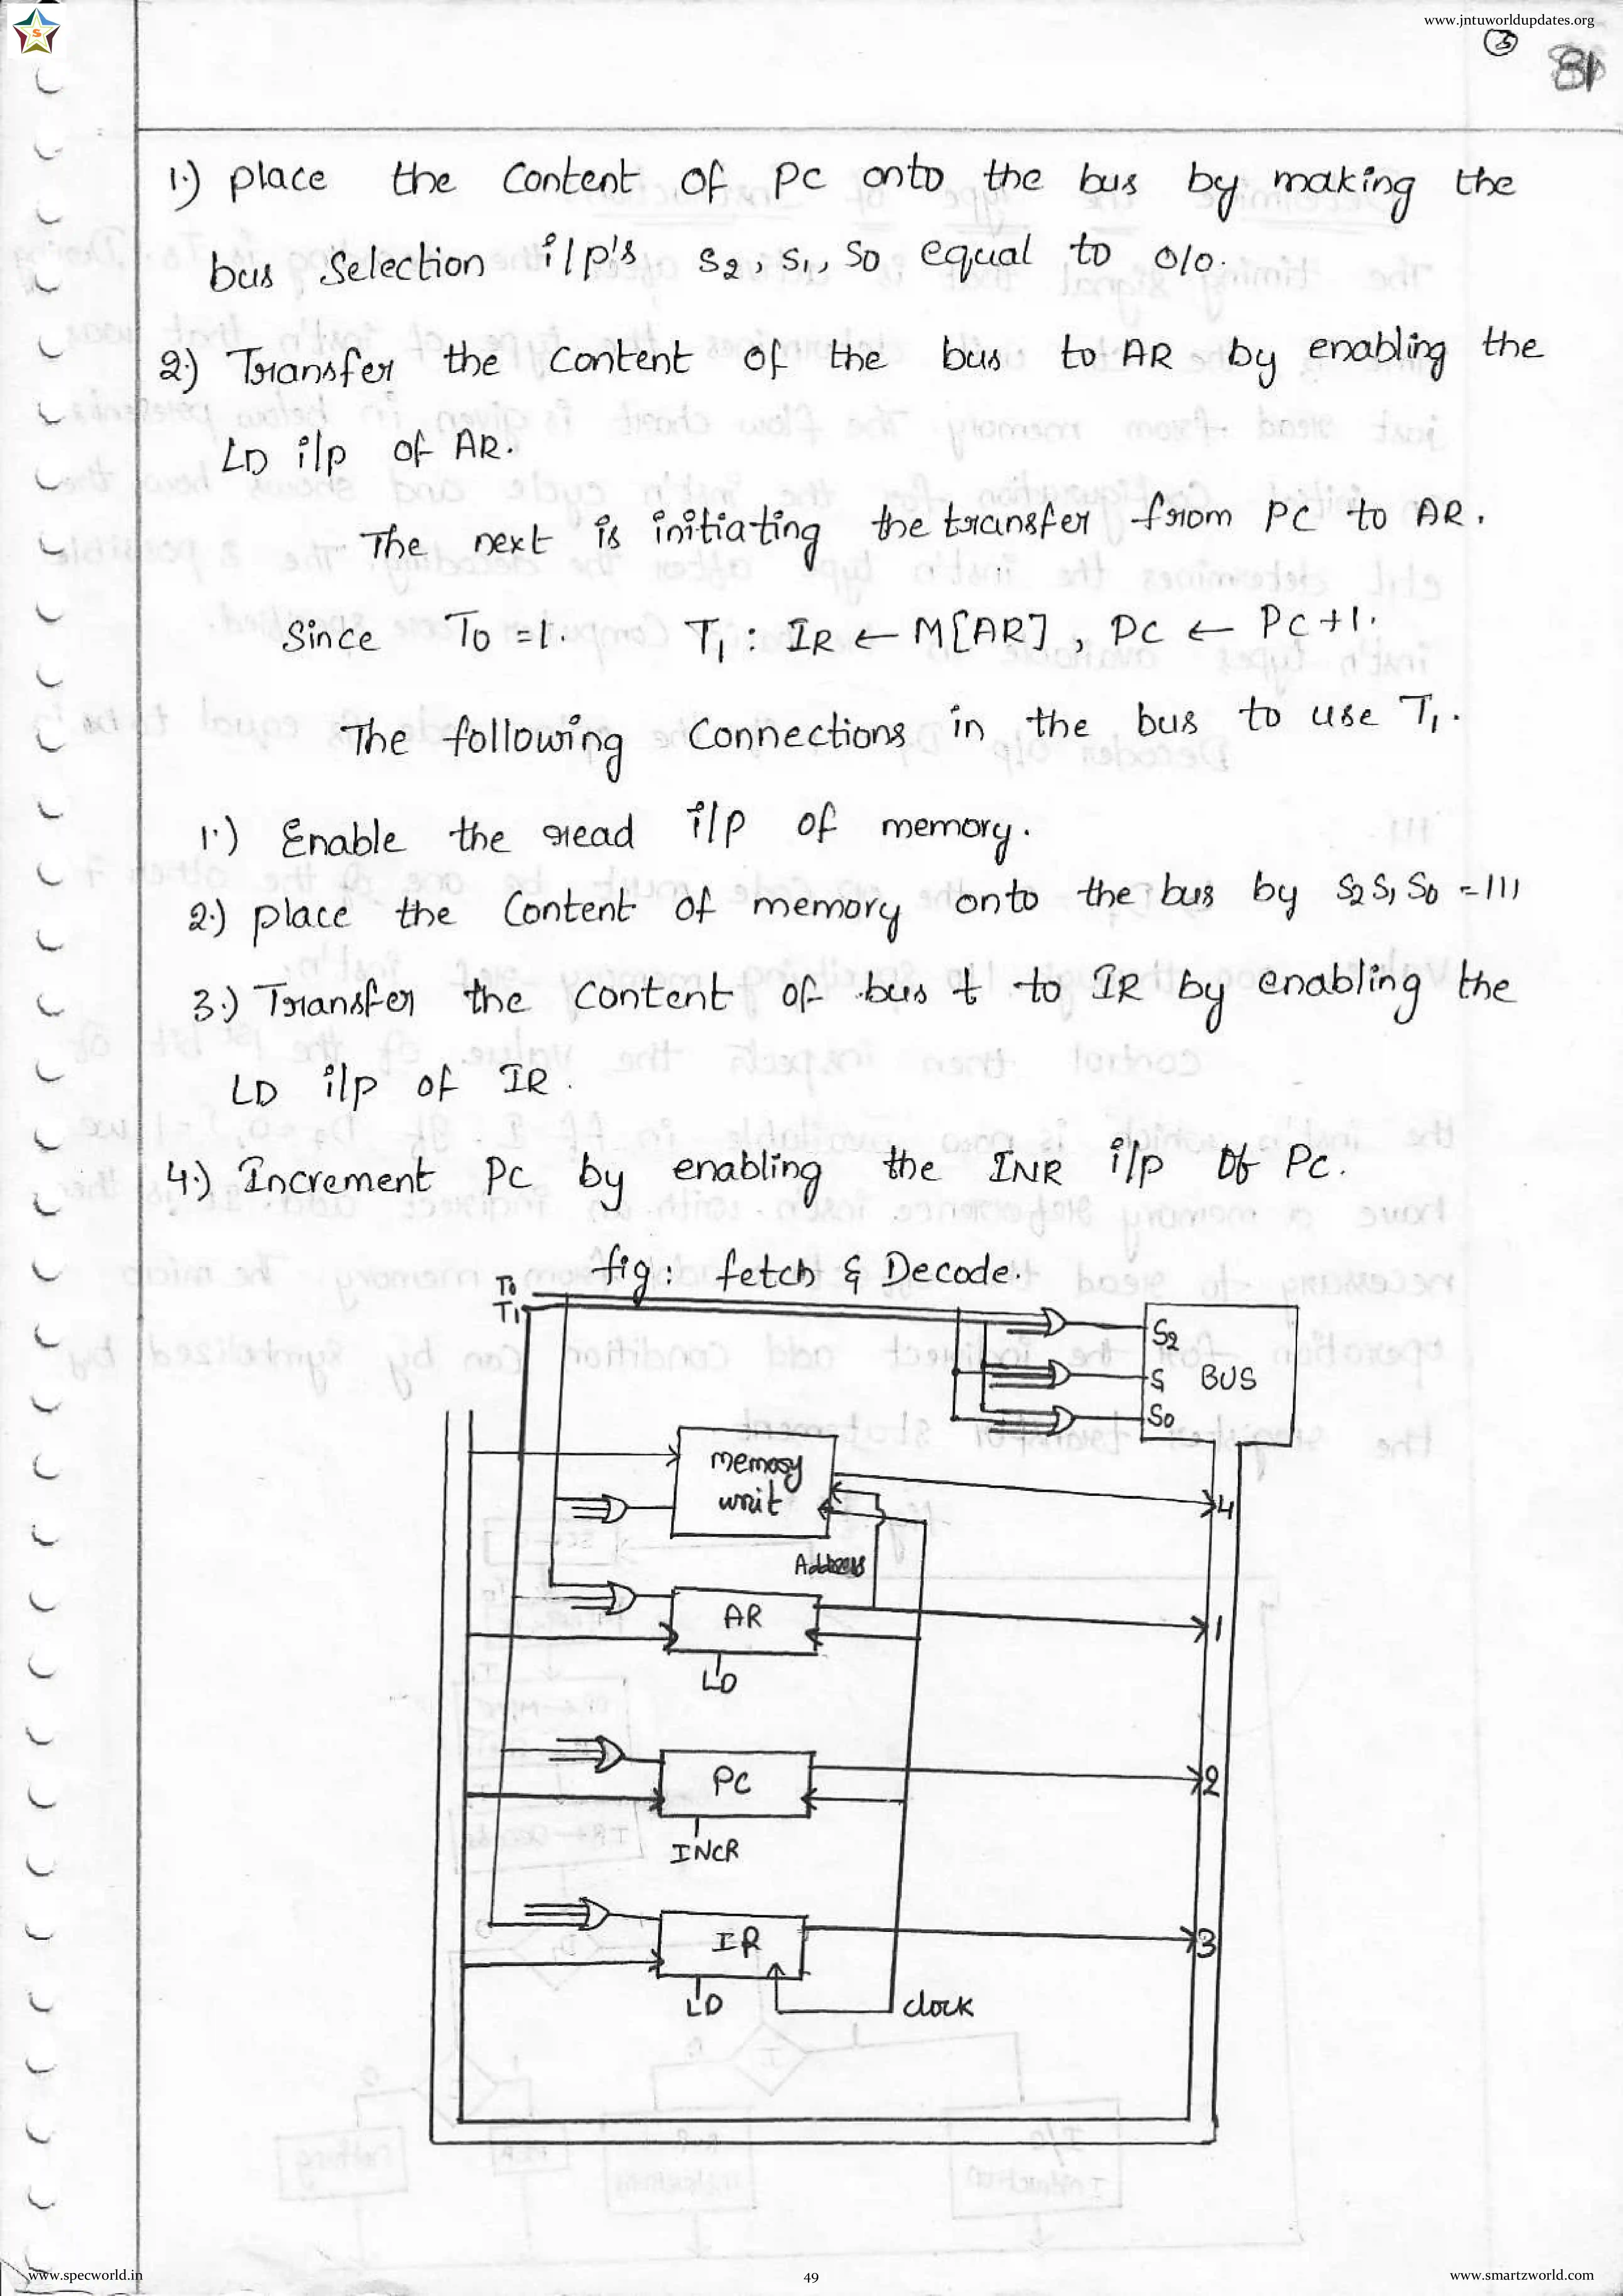 www.jntuworldupdates.org
S
3
81
1.) place the Content of PC onto the bus by making the
bus Selection i/p's S2, S1, S0 equal to 010.
2) Transfer the Content of the bus to AR by enabling the
LD i/p of AR.
The next is initiating the transfer from PC to AR.
Since T0 =1. T1 : IR ← M[AR] , PC ← PC+1.
The following Connections in the bus to use T1.
1.) Enable the read i/p of memory.
2.) place the Content of memory onto the bus by S2 S1 S0 =111
3.) Transfer the Content of bus t to IR by enabling the
LD i/p of IR.
4.) Increment PC by enabling the INR i/p Of PC.
fig: fetch & Decode.
T0
T1
S2
S BUS
S0
memory
unit
4
Address
AR
1
LD
PC
2
INCR
IR
3
LD
clock
www.specworld.in
49
www.smartzworld.com